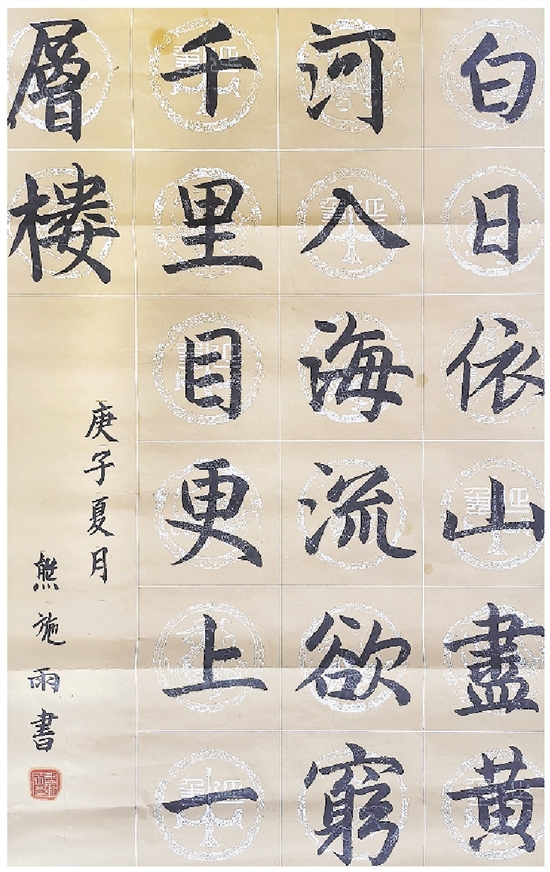 白日依山盡黄
河入海流欲窮
千里目更上一
層樓
庚子夏月
熊施雨書